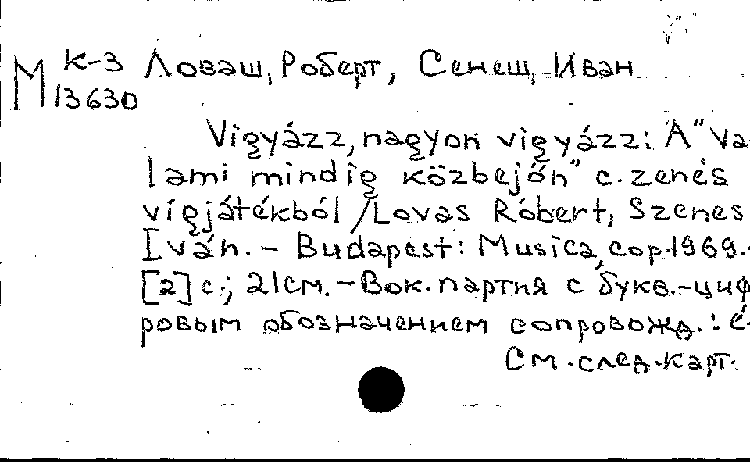 М К-3 Ловаш, Роберт, Сенеш, Иван
13630
Vigyázz, nagyon vigyázz: A "Va
lami mindig közbejön" c. zenés
vígjátékból / Lovas Róbert, Szenes
Iván. - Budapest: Musica, cop. 1969. -
[2] с.; 21см. - Вок. партия с букв.-циф
ровым обозначением сопровожд.:
См. след. карт.